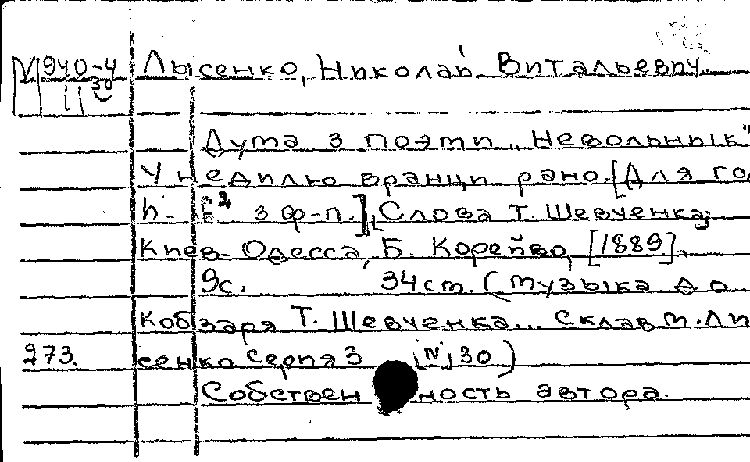 М 940-4 Лысенко, Николай Витальевич.
30
Дума з поэти „Невольнык"
У недилю вранци рано. [Для го
з ф-п.], Слова Т. Шевченка;
Киев-Одесса, Б. Корейво, [1889].
9с. 34 ст. (Музыка до
Кобзаря Т. Шевченка... склав М. Ли
273. сенко серия 3 N 30)
Собственность автора.